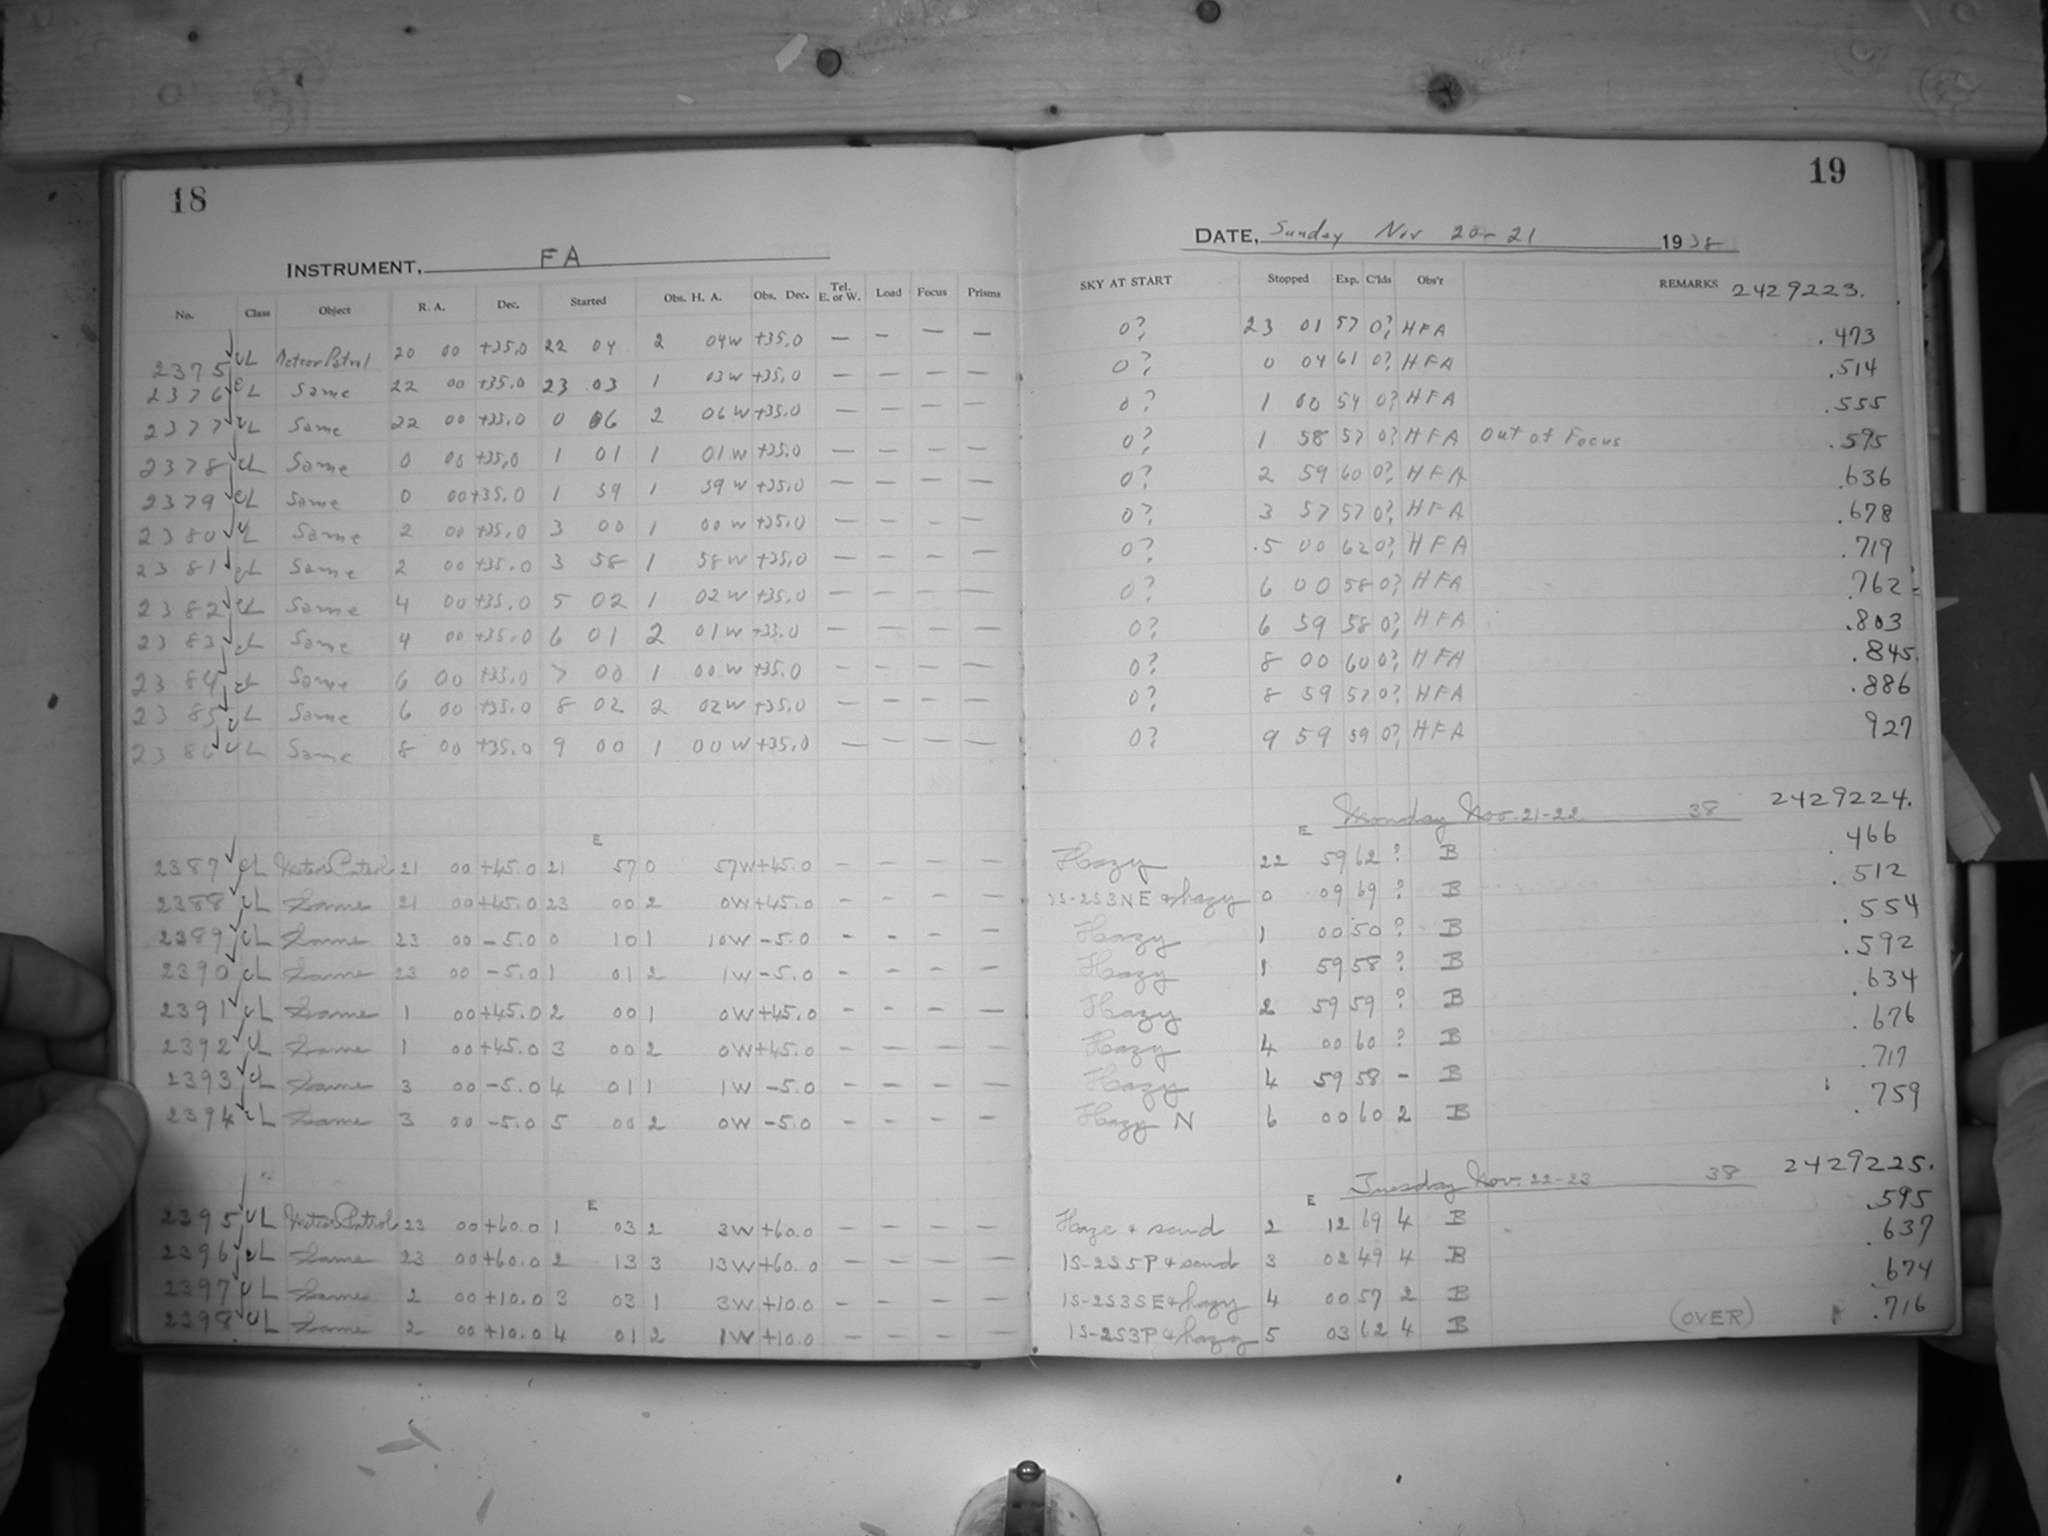 18
INSTRUMENT, FA
No. Class Object R. A. Dec. Started Obs. H. A. Obs. Dec. Tel. E. or W. Load Focus Prisms
2375 CL Meteor Patrol 20 00 +35.0 22 04 2 04W +35.0 — — — —
2376 CL Same 22 00 +35.0 23 03 1 03W +35.0 — — — —
2377 CL Same 22 00 +35.0 0 06 2 06W +35.0 — — — —
2378 CL Same 0 00 +35.0 1 01 1 01W +35.0 — — — —
2379 CL Same 0 00 +35.0 1 59 1 59W +35.0 — — — —
2380 CL Same 2 00 +35.0 3 00 1 00W +35.0 — — — —
2381 CL Same 2 00 +35.0 3 58 1 58W +35.0 — — — —
2382 CL Same 4 00 +35.0 5 02 1 02W +35.0 — — — —
2383 CL Same 4 00 +35.0 6 01 2 01W +35.0 — — — —
2384 CL Same 6 00 +35.0 7 00 1 00W +35.0 — — — —
2385 CL Same 6 00 +35.0 8 02 2 02W +35.0 — — — —
2386 CL Same 8 00 +35.0 9 00 1 00W +35.0 — — — —
E
2387 CL Meteor Patrol 21 00 +45.0 21 57 0 57W +45.0 - - - —
2388 CL Same 21 00 +45.0 23 00 2 0W +45.0 - - - —
2389 CL Same 23 00 -5.0 0 10 1 10W -5.0 - - - —
2390 CL Same 23 00 -5.0 1 01 2 1W -5.0 - - - —
2391 CL Same 1 00 +45.0 2 00 1 0W +45.0 - - - —
2392 CL Same 1 00 +45.0 3 00 2 0W +45.0 - - - —
2393 CL Same 3 00 -5.0 4 01 1 1W -5.0 - - - —
2394 CL Same 3 00 -5.0 5 00 2 0W -5.0 - - - —
E
2395 CL Meteor Patrol 23 00 +60.0 1 03 2 3W +60.0 - - - —
2396 CL Same 23 00 +60.0 2 13 3 13W +60.0 - - - —
2397 CL Same 2 00 +10.0 3 03 1 3W +10.0 - - - —
2398 CL Same 2 00 +10.0 4 01 2 1W +10.0 - - - —
19
DATE, Sunday Nov 20-21 1938
SKY AT START Stopped Exp. C'lds Obs'r REMARKS 2429223.
0? 23 01 57 0? HFA .473
0? 0 04 61 0? HFA .514
0? 1 00 54 0? HFA .555
0? 1 58 57 0? HFA Out of Focus .595
0? 2 59 60 0? HFA .636
0? 3 57 57 0? HFA .678
0? 5 00 62 0? HFA .719
0? 6 00 58 0? HFA .762
0? 6 59 58 0? HFA .803
0? 8 00 60 0? HFA .845
0? 8 59 57 0? HFA .886
0? 9 59 59 0? HFA 927
Monday Nov. 21-22 38 2429224.
E
Hazy 22 59 62 ? B .466
1S-2S3NE & hazy 0 09 69 ? B .512
Hazy 1 00 50 ? B .554
Hazy 1 59 58 ? B .592
Hazy 2 59 59 ? B .634
Hazy 4 00 60 ? B .676
Hazy 4 59 58 - B .717
Hazy N 6 00 60 2 B .759
Tuesday Nov. 22-23 38 2429225.
E
Haze & scud 2 12 69 4 B .595
1S-2S5P & scud 3 02 49 4 B .637
1S-2S3SE & hazy 4 00 57 2 B .674
1S-2S3P & hazy 5 03 62 4 B (OVER) .716